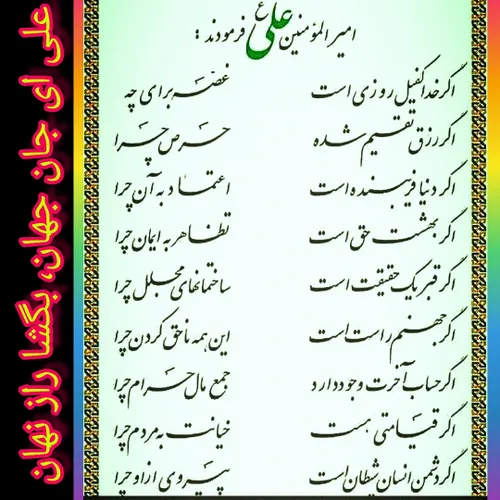 امیرالمؤمنین علی ع فرمودند :
اگر خدا کفیل روزی است غصّه برای چه
اگر رزق تقسیم شده حرص چرا
اگر دنیا فریبنده است اعتماد به آن چرا
اگر بهشت حق است تظاهر به ایمان چرا
اگر قبر یک حقیقت است ساختمانهای مجلل چرا
اگر جهنم راست است این همه ناحق کردن چرا
اگر حساب آخرت وجود دارد جمع مال حرام چرا
اگر قیامتی هست خیانت به مردم چرا
اگر دشمن انسان شطان است پیروی از او چرا
علی ای جان جهان، بگشا راز نهان